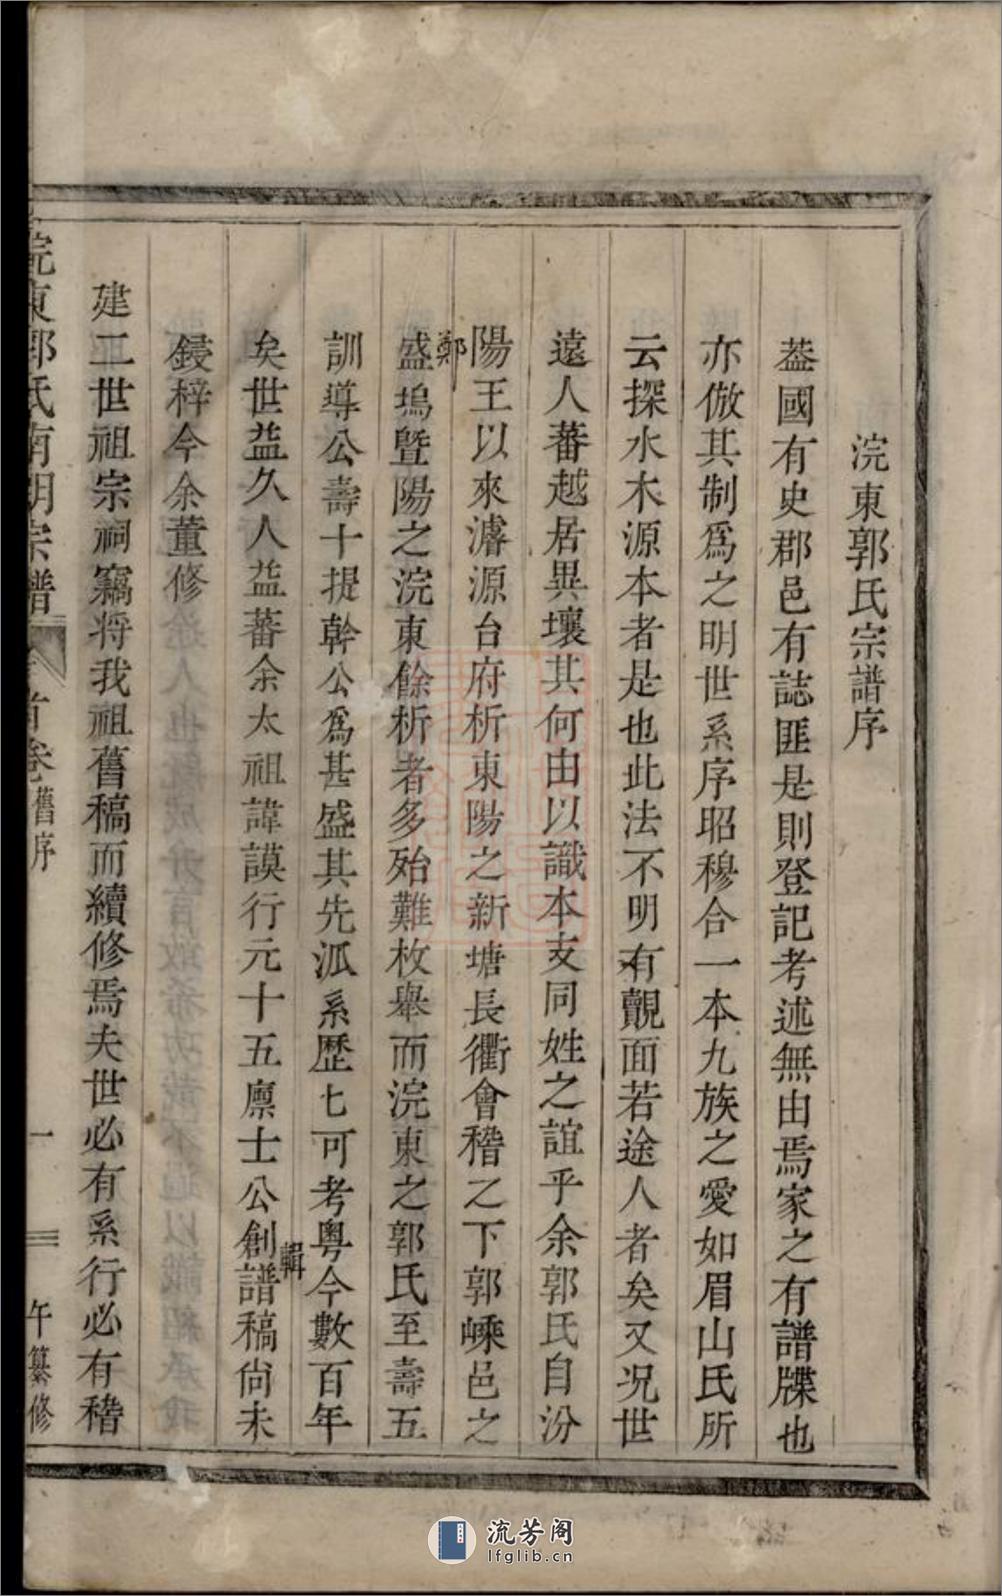 浣東郭氏宗譜序
葢國有史郡邑有誌匪是則登記考述無由焉家之有譜牒也
亦倣其制爲之明世系序昭穆合一本九族之愛如眉山氏所
云探水木源本者是也此法不明有覿面若途人者矣又况世
遠人蕃越居異壤其何由以識本支同姓之誼乎余郭氏自汾
陽王以來濬源台府析東陽之新塘長衢會稽之下郭嵊邑之
鄭
盛塢暨陽之浣東餘析者多殆難枚舉而浣東之郭氏至壽五
訓導公壽十提幹公爲甚盛其先派系歷七可考粵今數百年
輯
矣世益久人益蕃余太祖諱謨行元十五廪士公創譜稿尚未
鋟梓今余董修
建二世祖宗祠竊將我祖舊稿而續修焉夫世必有系行必有稽
浣東郭氏南明宗譜
首卷
舊序
一
午纂修
流芳阁
lfglib.cn